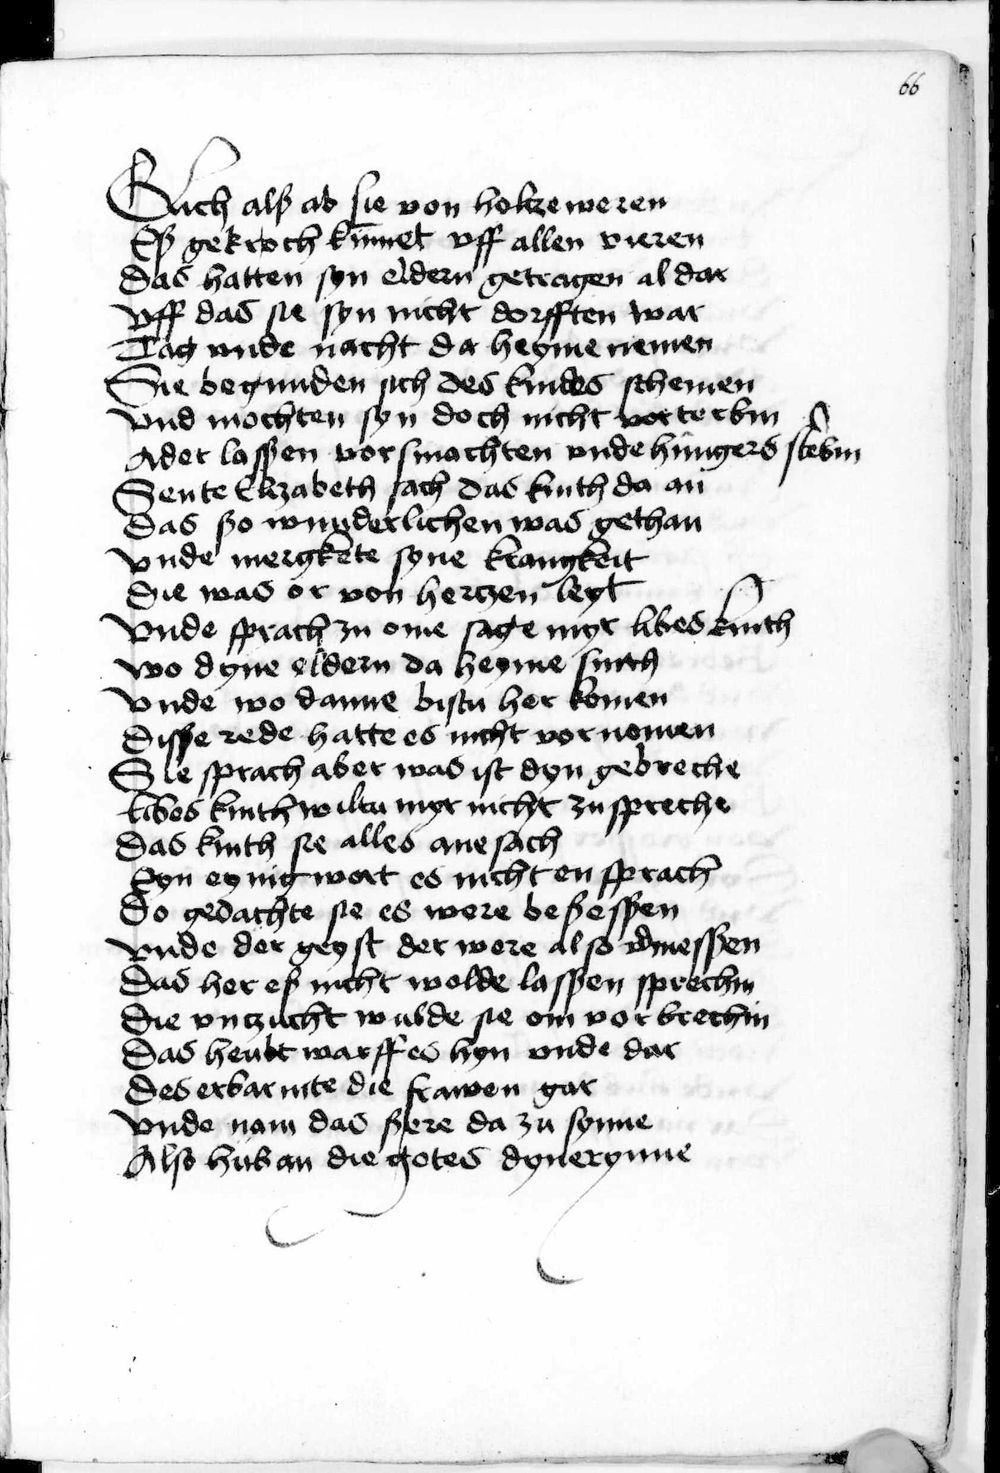 66
Glich alß ab sie von holtze weren
Eß gekroch kūmet vff allen vieren
Das hatten syn eldern getragen al dar
Vff das sie syn nicht dorfften war
Tag vnde nacht da heyme nemen
Sie begunden sich des kindes schemen
Vnd mochten syn doch nicht vorterbin
Ader lassen vorsmachten vnde hungers sterbin
Sente Elizabeth sach das kinth da an
Das so wunderlichen was gethan
Vnde mergkete syne krangkeit
Die was or von hertzen leyt
Vnde sprach zu ome sage myr libes kinth
Wo dyne eldern da heyme sinth
Vnde wo danne bistu her komen
Disse rede hatte es nicht vornomen
Sie sprach aber was ist dyn gebreche
Libes kinth wiltu myr nicht zu spreche
Das kinth sie alles ane sach
Eyn eynig wort es nicht en sprach
Do gedachte sie es were beßessen
Vnde der geyst der were also vormessen
Das her eß nicht wolde lassen sprechin
Die vntzucht wulde sie om vorbrechin
Das heubt warff es hyn vnde dar
Des erbarmte die frawen gar
Vnde nam das ßere da zu synne
Also hub an die gotes dynerynne